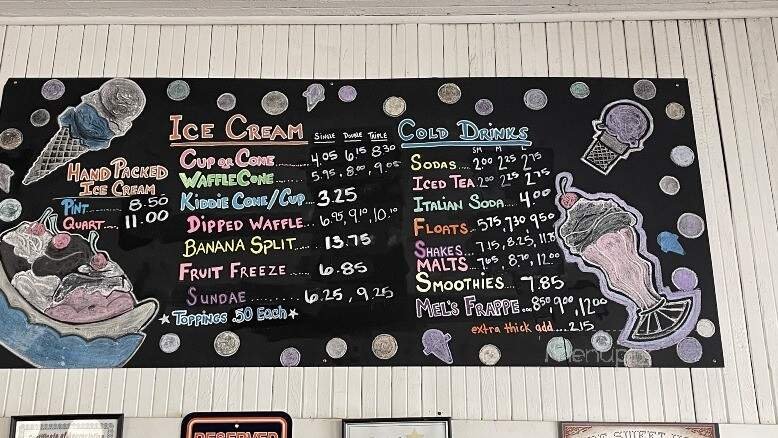 HAND PACKED
ICE CREAM
PINT 8.50
QUART 11.00
ICE CREAM
SINGLE DOUBLE TRIPLE
CUP OR CONE 4.05 6.15 8.30
WAFFLE CONE 5.95, 8.00, 9.05
KIDDIE CONE/CUP 3.25
DIPPED WAFFLE 6.95, 9.10, 10.10
BANANA SPLIT 13.75
FRUIT FREEZE 6.85
SUNDAE 6.25, 9.25
★ TOPPINGS .50 EACH ★
COLD DRINKS
SM M
SODAS 2.00 2.25 2.75
ICED TEA 2.00 2.25 2.75
ITALIAN SODA 4.00
FLOATS 5.75, 7.30, 9.50
SHAKES 7.15, 8.25,
MALTS 7.65, 8.70, 12.00
SMOOTHIES 7.85
MEL'S FRAPPE 8.50, 9.00, 12.00
extra thick add 2.15
RESERVED